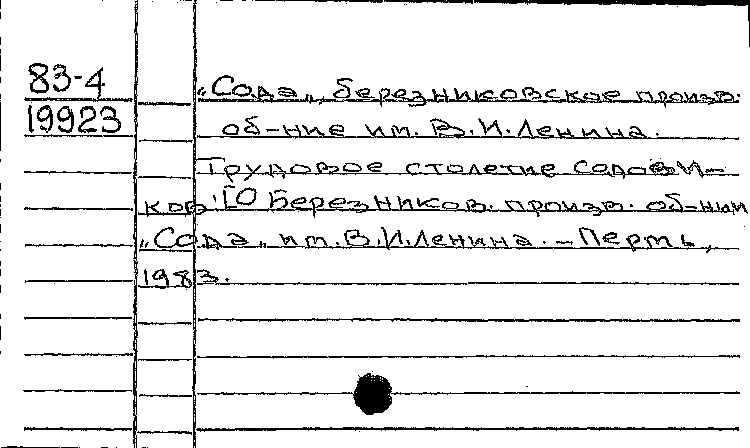 83-4
19923
„Сода„, березниковское произв.
об-ние им. В.И.Ленина.
Трудовое столетие содови-
ков: [О Березников. произв. об-нии
„Сода„ им. В.И.Ленина. – Пермь,
1983.